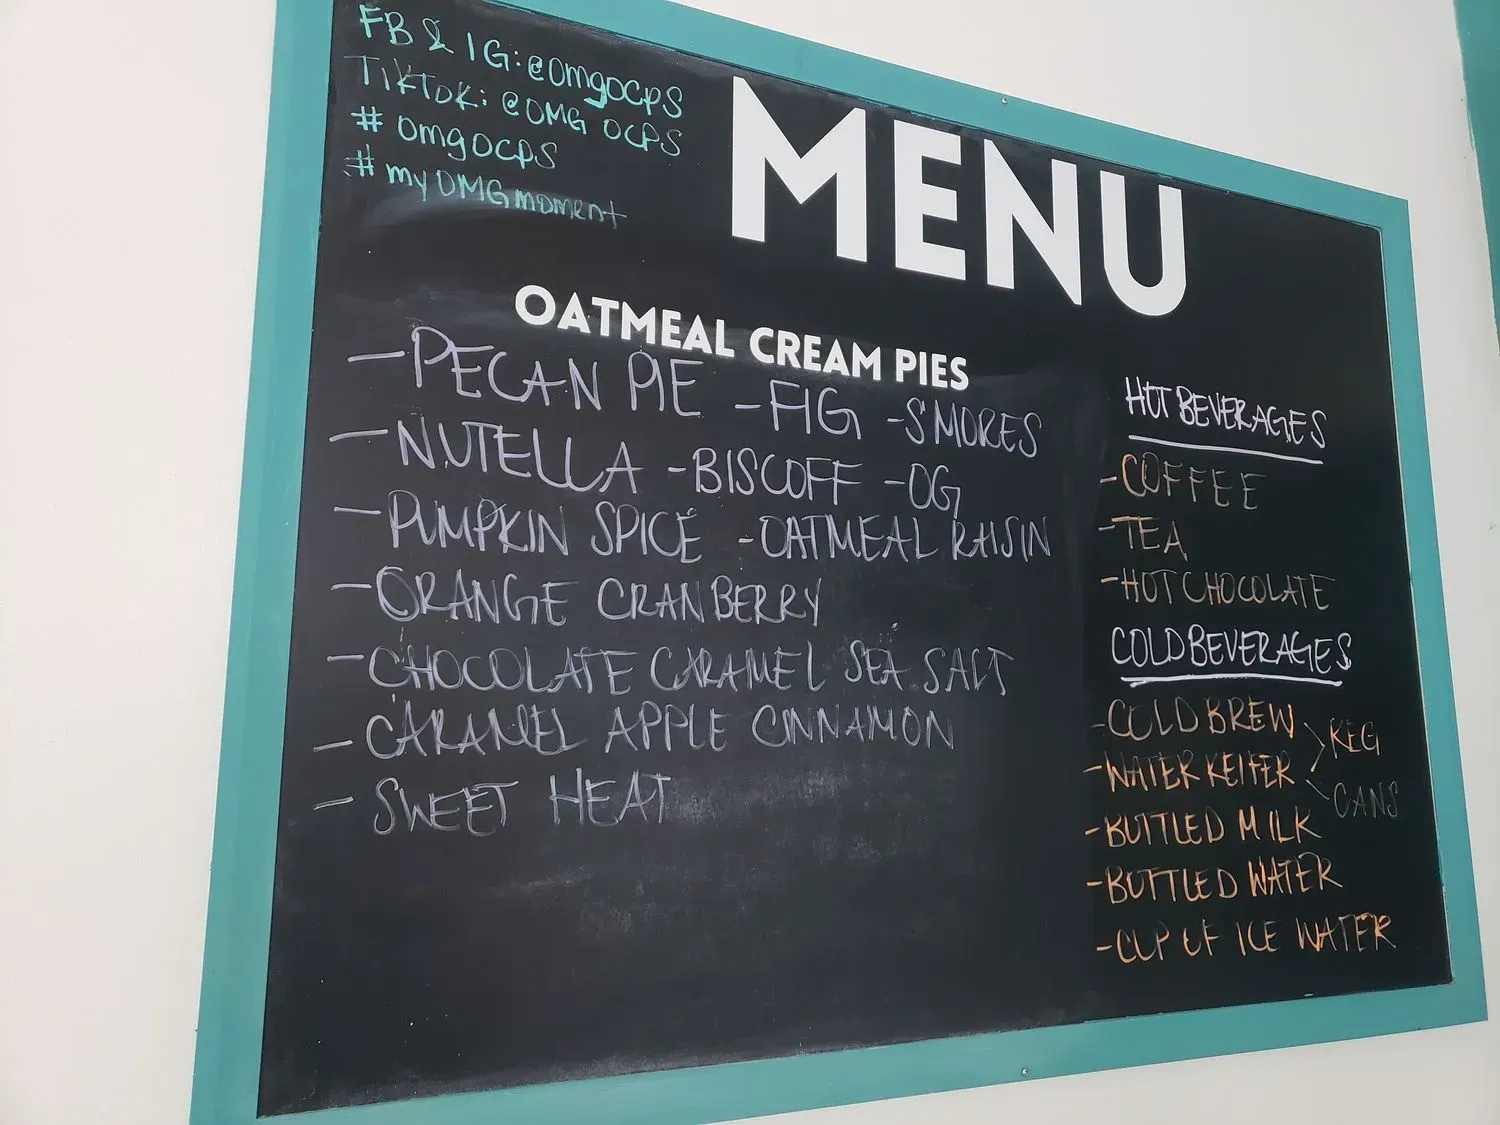 FB & IG: @OmgOCPS
TikTok: @OMG OCPS
# OmgOCPS
# myOMGmoment
MENU
OATMEAL CREAM PIES
- PECAN PIE - FIG - S'MORES
- NUTELLA - BISCOFF - OG
- PUMPKIN SPICE - OATMEAL RAISIN
- ORANGE CRANBERRY
- CHOCOLATE CARAMEL SEA SALT
- CARAMEL APPLE CINNAMON
- SWEET HEAT
HOT BEVERAGES
- COFFEE
- TEA
- HOT CHOCOLATE
COLD BEVERAGES
- COLD BREW
KEG
- WATER KEIFER
CANS
- BOTTLED MILK
- BOTTLED WATER
- CUP OF ICE WATER